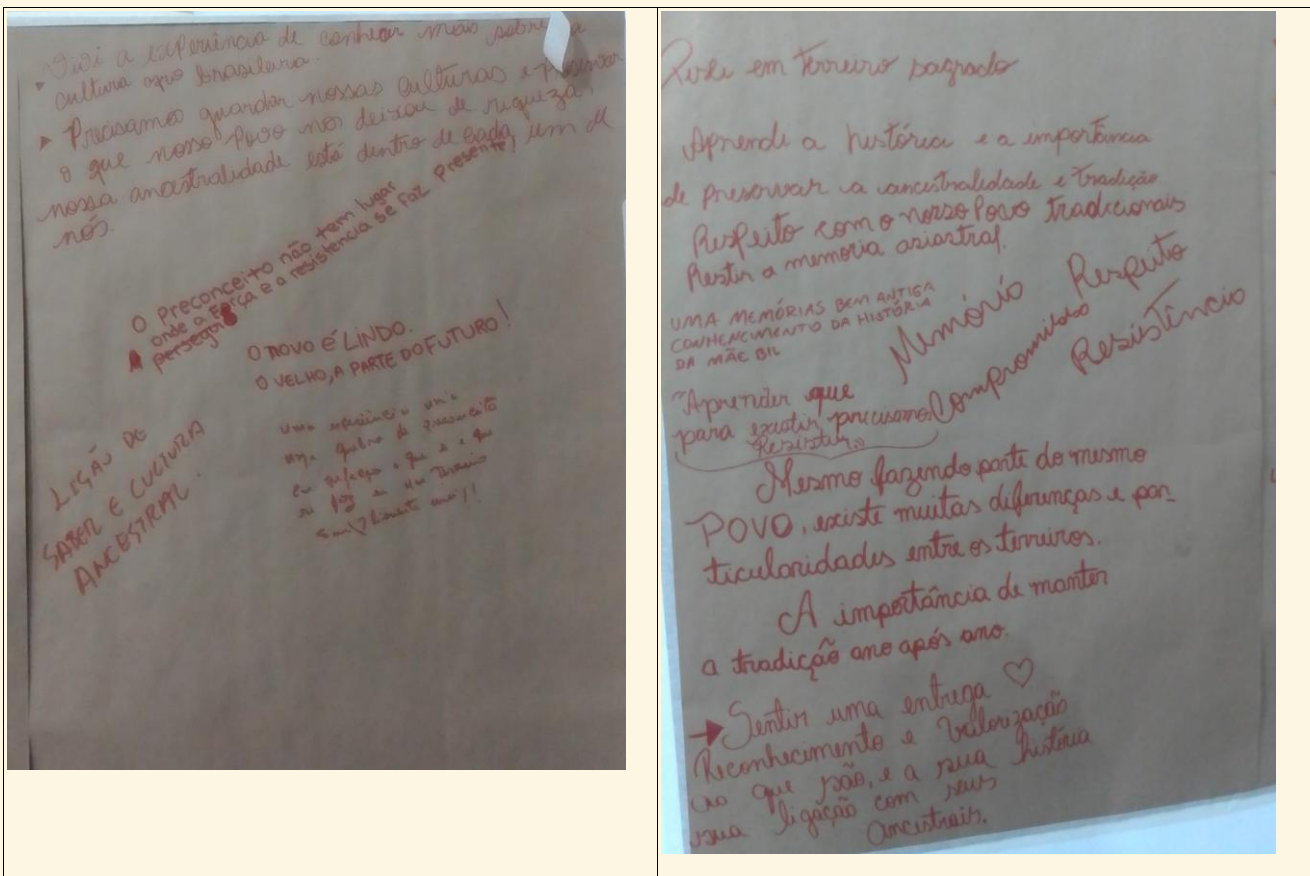 Vivi a experiência de conhecer mais sobre a
cultura afro brasileira.
Precisamos guardar nossas culturas e preservar
o que nosso Povo nos deixou de riqueza,
nossa ancestralidade está dentro de cada um de
nós.
O Preconceito não tem lugar
onde a Força e a resistencia se faz presente!
O novo É LINDO.
O VELHO, A PARTE DO FUTURO!
LIÇÃO DE
SABER E CULTURA
ANCESTRAL.
Uma experiência
quebra de preconceito
eu
em um Terreiro
em terreiro sagrado
Aprendi a história e a importância
de preservar a ancestralidade e Tradição
Respeito com o nosso Povo tradicionais
a memoria
UMA MEMÓRIAS BEM ANTIGA
DA HISTÓRIA
DA MÃE BIL
Memório Respeito
Compromisso
Resistêncio
"Aprender que
para existir, precisamos
Resistir."
Mesmo fazendo parte do mesmo
POVO, existe muitas diferenças e par-
ticularidades entre os terreiros.
A importância de manter
a tradição ano após ano.
Sentir uma entrega
Reconhecimento e Valorização
ao que são, e a sua história
sua ligação com seus
Ancestrais.